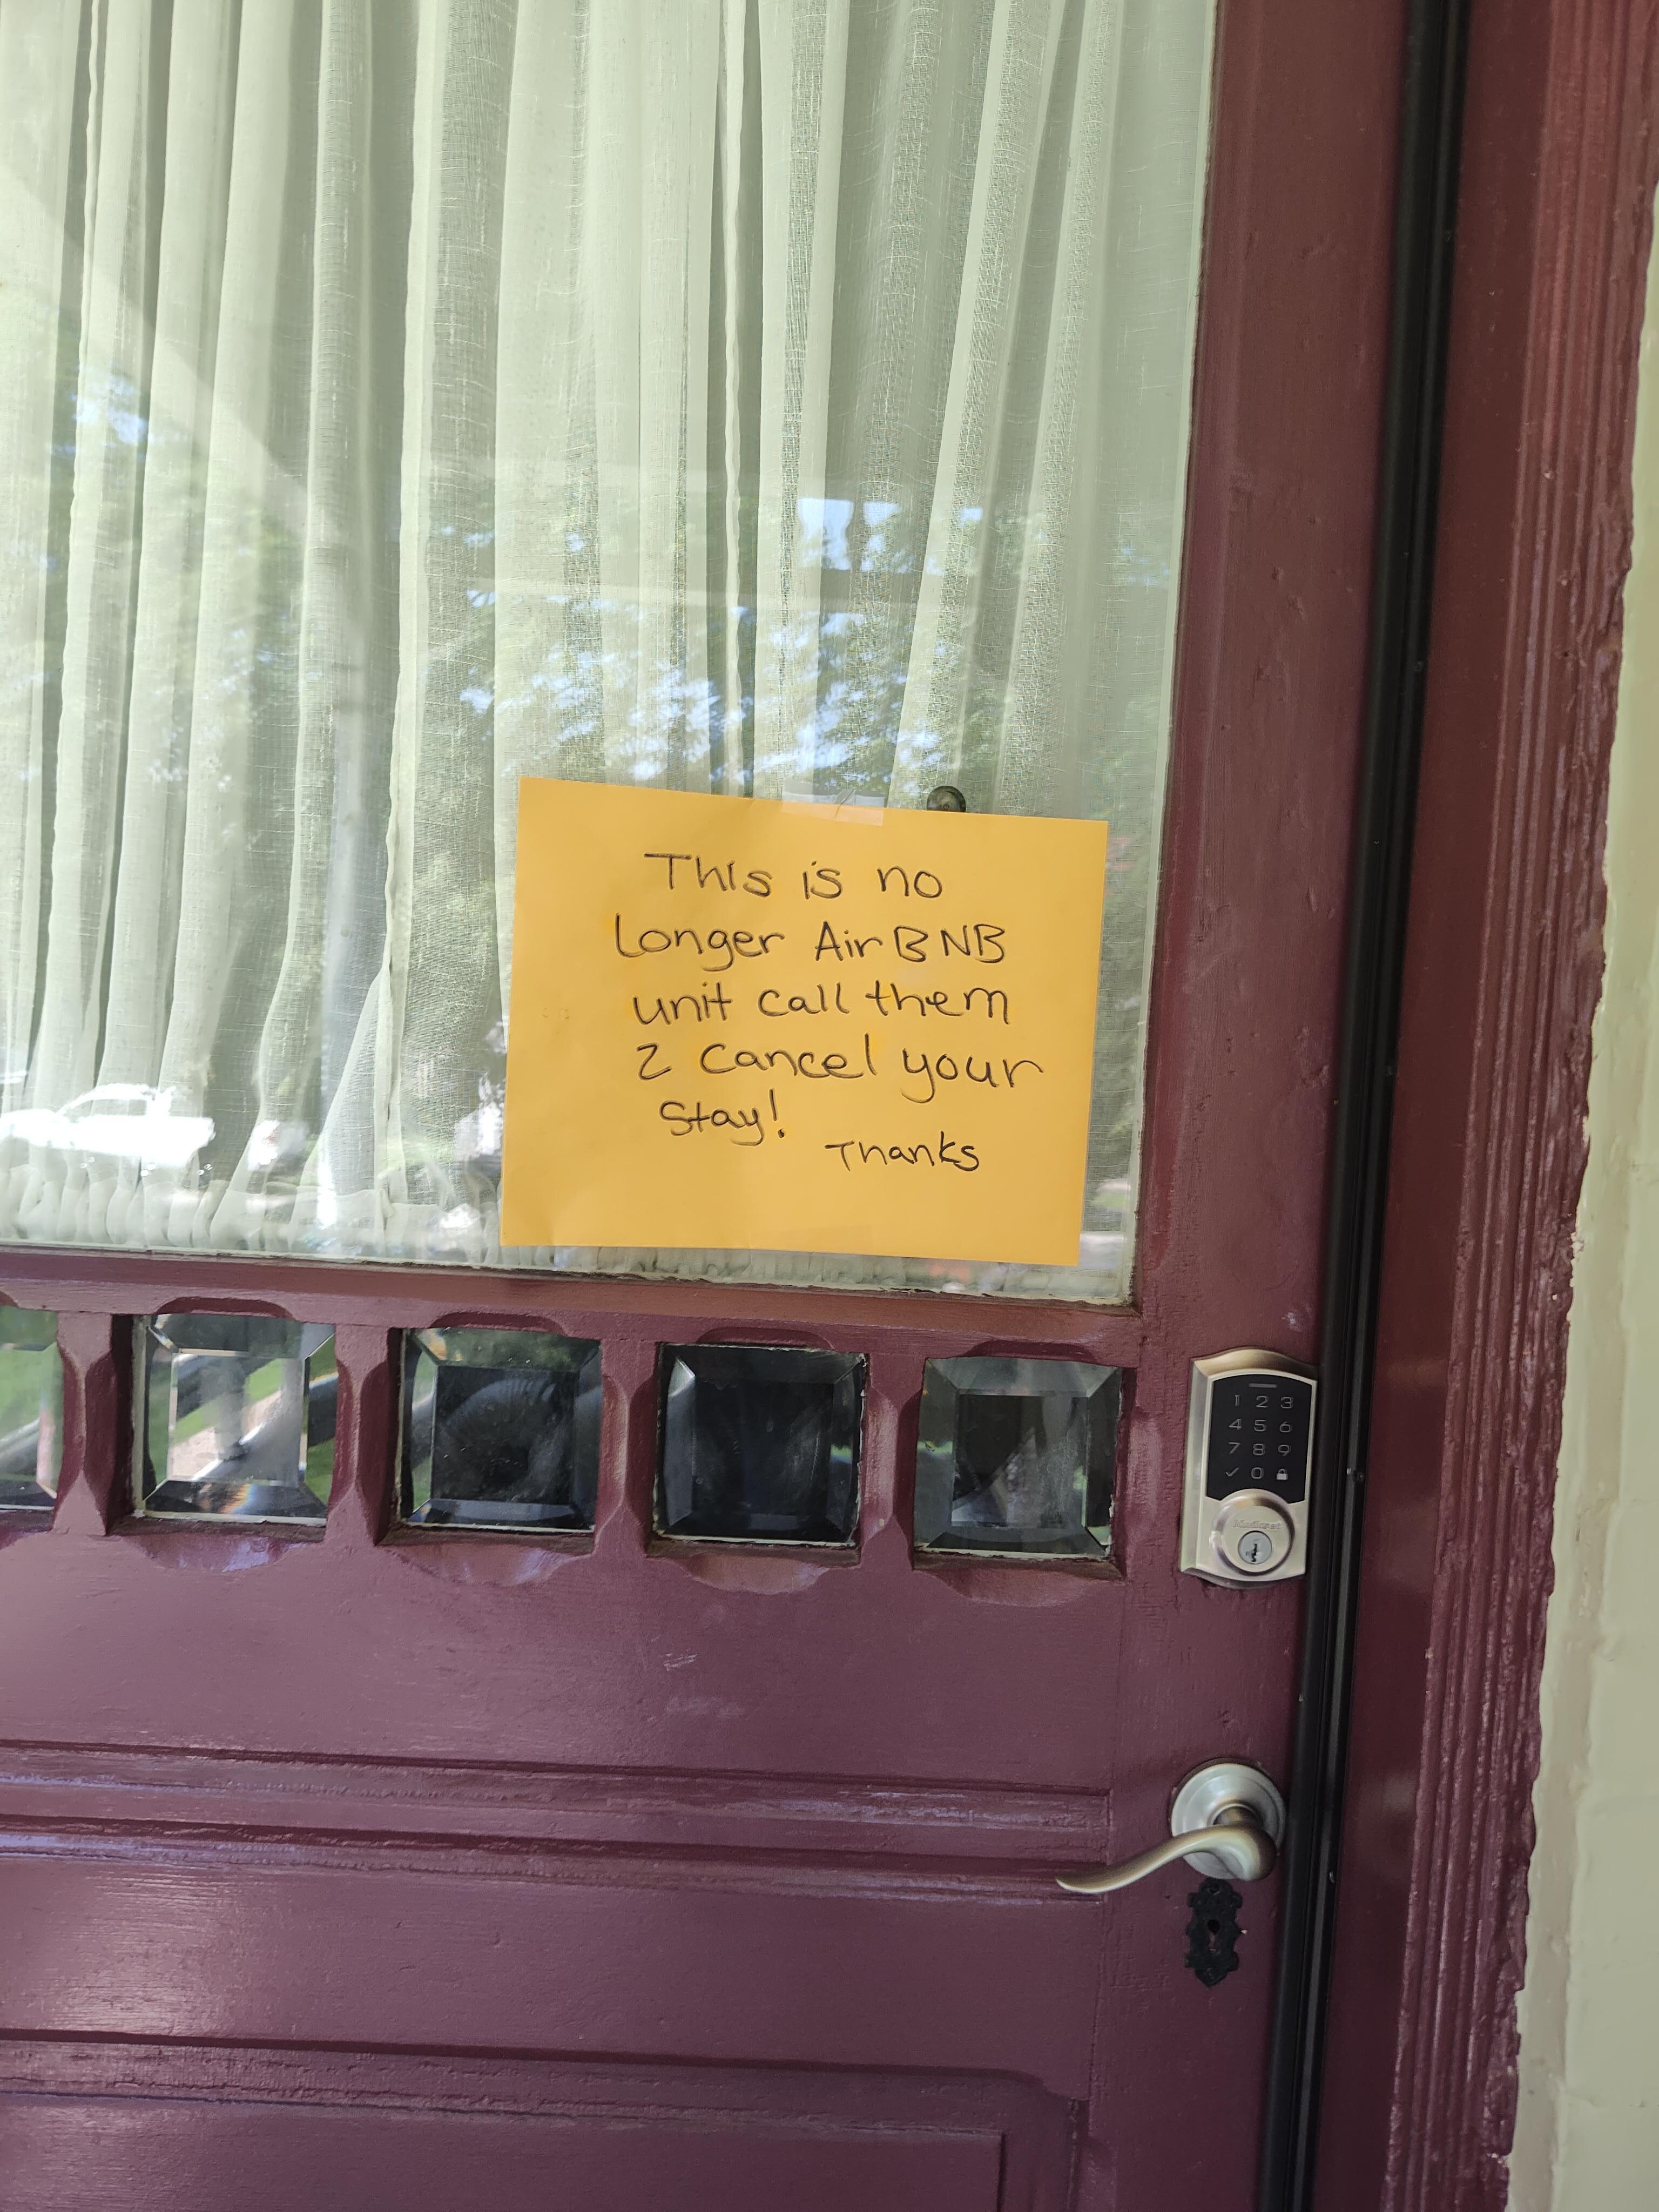 This is no
Longer AirBNB
unit call them
2 cancel your
stay!
Thanks
1 2 3
4 5 6
7 8 9
✓ 0